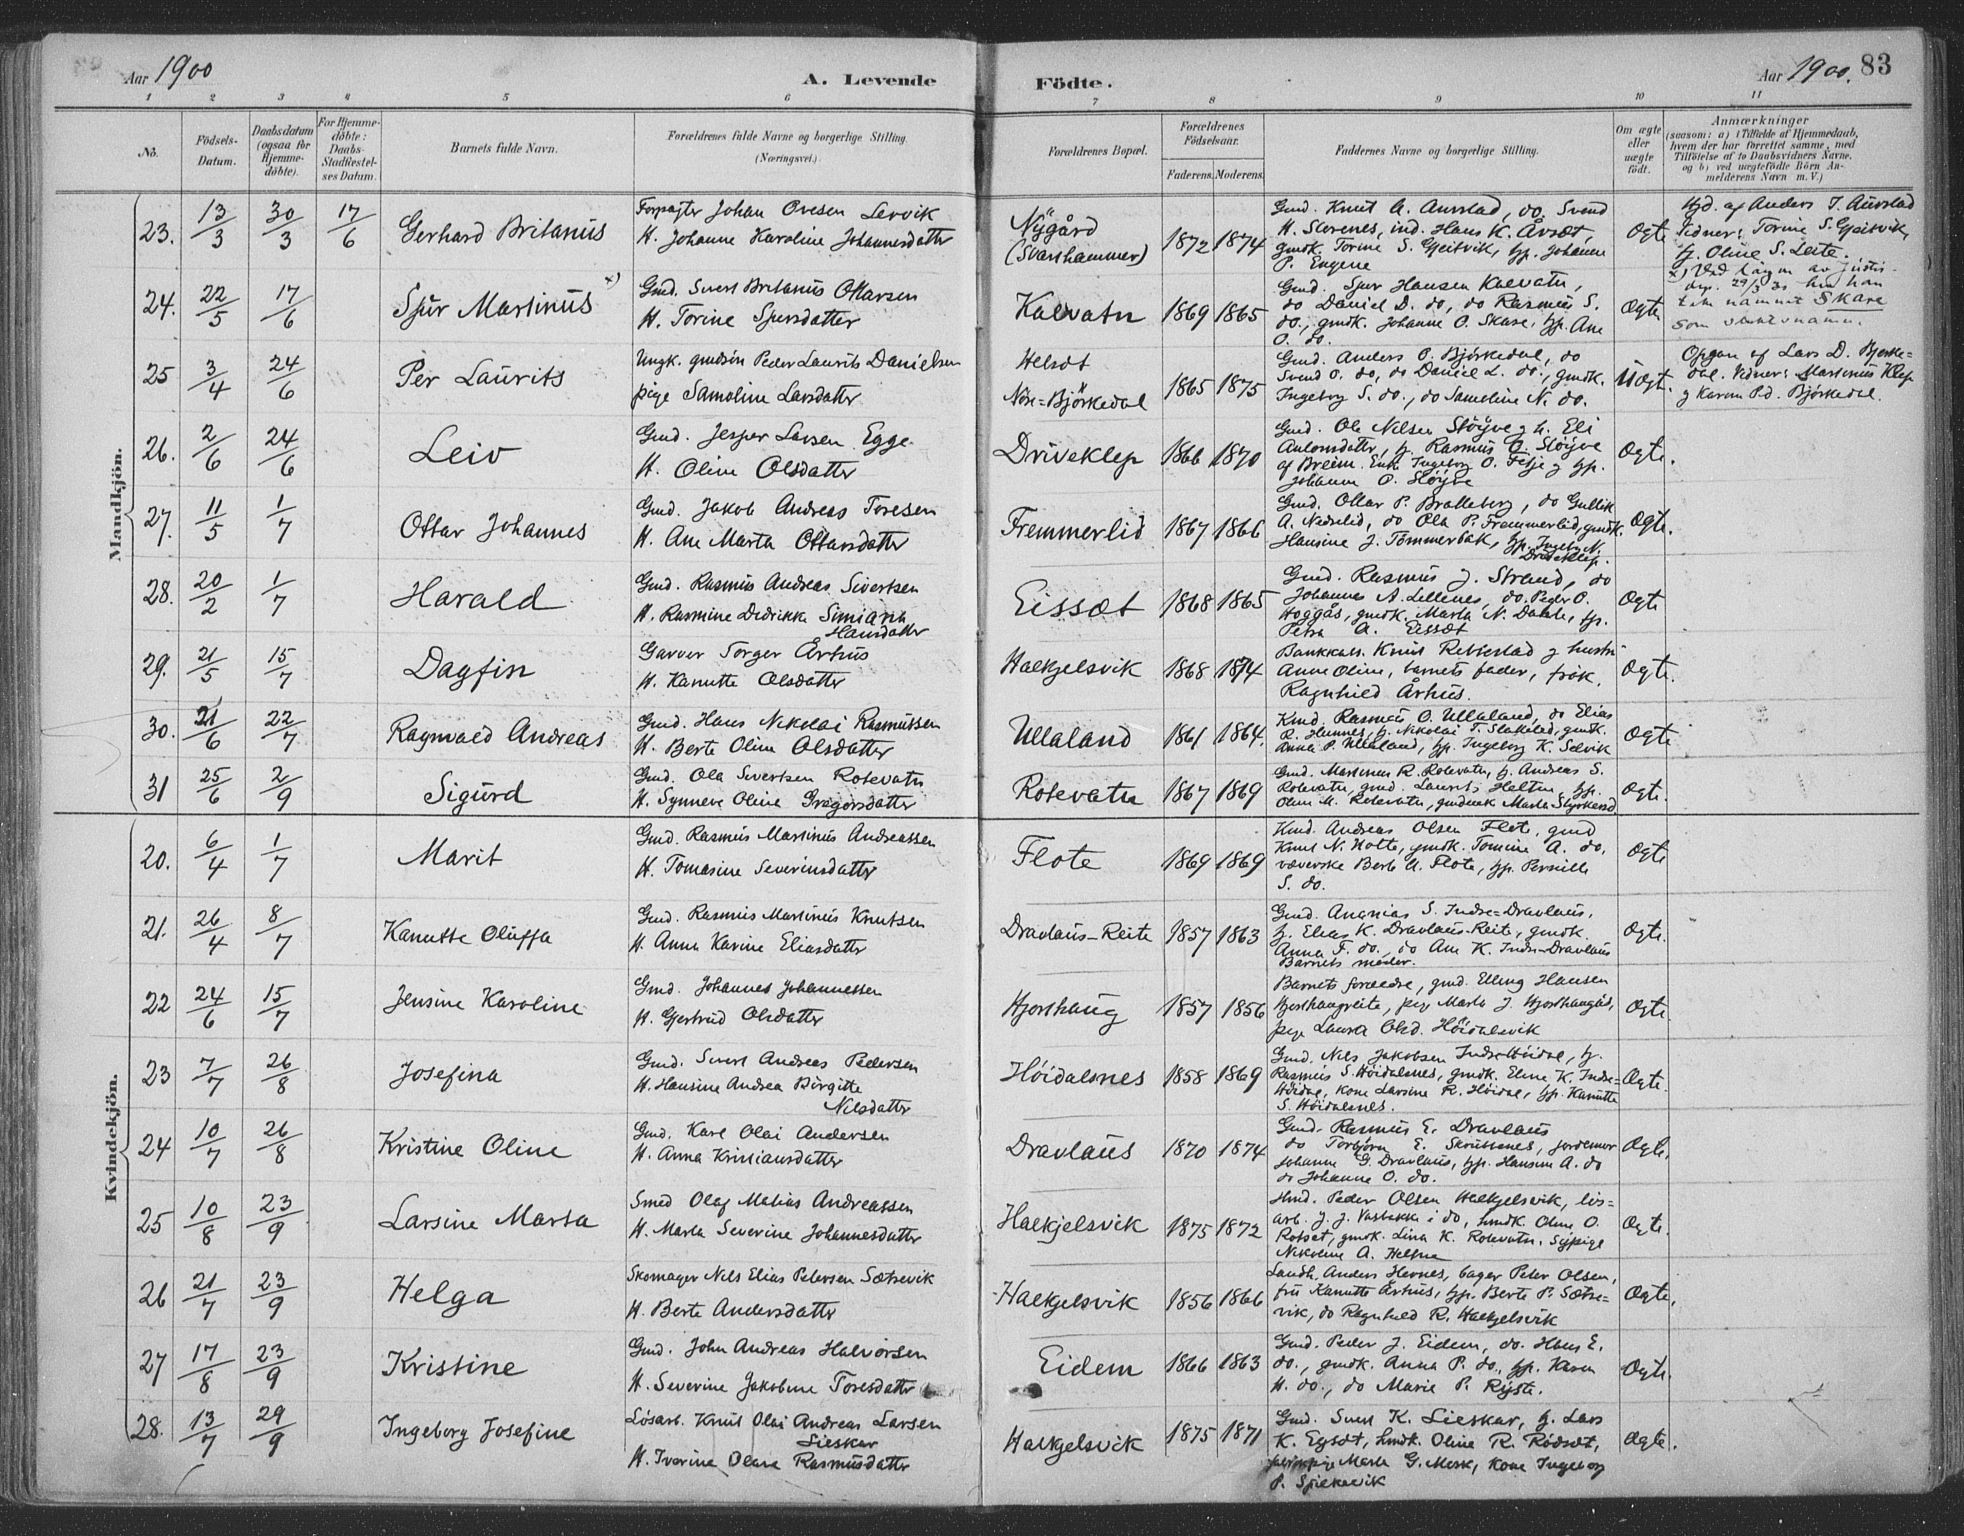 Aar 1900
A. Levende Födte.
Aar 1900.
83
1 2 3 4 5 6 7 8 9 10 11
No.
Födsels-Datum.
Daabsdatum (ogsaa for Hjemme-döbte).
For Hjemme-döbte: Daabs-Stadfestel-ses Datum.
Barnets fulde Navn.
Forældrenes fulde Navne og borgerlige Stilling. (Næringsvei.)
Forældrenes Bopæl.
Forældrenes Födselsaar.
Faderens. Moderens.
Faddernes Navne og borgerlige Stilling.
Om ægte eller uægte födt.
Anmærkninger
(saasom: a) i Tilfælde af Hjemmedaab,
hvem der har forrettet samme, med
Tilföielse af to Daabsvidners Navne,
og b) ved uægtefödte Börn An-
melderens Navn m. V.)
Mandkjön.
23. 13/3 30/3 17/6 Gerhard Britanus
Forpagter Johan Ovesen Lervik
H. Johanne Karoline Johannesdatter
Nygård
(Svarshammer) 1872 1874
Gmd. Knut A. Aurstad, do. Svend
H. Storenes, ind. Hans K. Åvsæt,
gmdk. Torine S. Gjeitvik, hp. Johanne
P. Engene
Ogte
Hjd. af Anders T. Aurstad
Vidner: Torine S. Gjeitvik,
hj. Oline S. Leite.
24. 22/5 17/6 Sjur Martinus x)
Gmd. Sivert Britanus Ottarsen
H. Torine Sjursdatter
Kalvatn 1869 1865
Gmd. Sjur Hansen Kalvatn,
do Daniel D. do, do Rasmus S.
do., gmdk. Johanne O. Skare, hp. Ane
O. do.
Ogte
x) Ved løyve av justis-
dep. 29/3 31 har han
teke namnet Skare
som slektsnamn.
25 3/4 24/6 Per Laurits
Ungk. gmdsøn Peder Laurits Danielsen
pige Samoline Larsdatter
Helset
Nðre=Björkedal 1865 1875
Gmd. Anders O. Björkedal, do
Svend O. do, do Daniel L. do., gmdk.
Ingeborg S. do., do Samoline N. do.
Uægte
Opgav. af Lars D. Bjerke=
dal. Vidner: Martinus Klep
og Karen Pd. Björkedal.
26. 2/6 24/6 Leiv
Gmd. Jesper Larsen Egge
H. Oline Olsdatter
Driveklep 1866 1870
Gmd. Ole Nilsen Stöyve og h. Eli
Antonsdatter, hj. Rasmus O. Stöyve
af Breim. Enk. Ingeborg O. Fetje og hp.
Johanne O. Stöyve
Ogte.
27. 11/5 1/7 Ottar Johannes
Gmd. Jakob Andreas Toresen
H. Ane Marta Ottarsdatter
Fremmerlid 1867 1866
Gmd. Ottar P. Bratteberg, do Gullik
A. Nedrelid, do Ola P. Fremmerlid, gmdk.
Hansine J. Tömmerbak, hp. Ingeb. N.
Driveklep.
Ogte.
28. 20/2 1/7 Harald
Gmd. Rasmus Andreas Sivertsen
H. Rasmine Didrikke Simiana
Hansdatter
Eissæt 1868 1865
Gmd. Rasmus J. Strand, do
Johannes A. Lillenes, do. Peder O.
Hoggås, gmdk. Marta N. Dahle, hp.
Petra A. Eissæt
Ogte
29. 21/5 15/7 Dagfin
Garver Torger Århus
H. Kanutte Olsdatter
Halkjelsvik 1868 1874
Bankkass. Knut Rebbestad og hustru
Anne Oline, barnets fader, frök.
Ragnhild Århus.
Ogte.
30. 21/6 22/7 Ragnvald Andreas
Gmd. Hans Nikolai Rasmussen
H. Berte Oline Olsdatter
Ullaland 1861 1864.
Kmd. Rasmus O. Ullaland, do Elias
R. Humnes, hj. Nikolai T. Slettelid, gmdk.
Anna P. Ullaland, hp. Ingeborg K. Selvik
Ogte
31 25/6 2/9 Sigurd
Gmd. Ola Sivertsen Rotevatn
H. Synneve Oline Gregorsdatter
Rotevatn 1867 1869
Gmd. Martinus R. Rotevatn, hj. Andreas S.
Rotevatn, gmd. Laurits Helten, hp.
Oline M. Rotevatn, gmdenk Marta Styrkesd.
Ogte.
Kvindekjön.
20. 6/4 1/7 Marit
Gmd. Rasmus Martinus Andreassen
H. Tomasine Severinsdatter
Flote 1869 1869
Kmd. Andreas Olsen Flote, gmd
Knut N. Hotte, gmdk. Tomine A. do.
væverske Berte A. Flote, hp. Pernille
S. do.
Ogte
21. 26/4 8/7 Kanutte Oluffa
Gmd. Rasmus Martinus Knutsen
H. Anne Karine Eliasdatter
Dravlaus-Reite 1857 1863
Gmd. Ananias S. Indre=Dravlaus,
hj. Elias K. Dravlaus-Reite, gmdk.
Anna F. do., do Ane K. Indre-Dravlaus
Barnets moder.
Ogte.
22 24/6 15/7 Jensine Karoline
Gmd. Johannes Johannessen
H. Gjertrud Olsdatter
Hjorthaug 1857 1856
Barnets forældre, gmd. Elling Hansen
Hjorthaugreite, pige Marta J. Hjorthaugås,
pige Laura Olsd. Höidalsvik
Ogte.
23 7/7 26/8 Josefina
Gmd. Sivert Andreas Pedersen
H. Hansine Andrea Birgitte
Nilsdatter
Höidalsnes 1858 1869
Gmd. Nils Jakobsen Indre-Höidal, hj.
Rasmus S. Höidalsnes, gmdk. Eline K. Indre=
Höidal, kone Larsine R. Höidal, hp. Kanutte
S. Höidalsnes.
Ogte.
24 10/7 26/8 Kristine Oline
Gmd. Karl Olai Andersen
H. Anna Kristiansdatter
Dravlaus 1870 1874
Gmd. Rasmus E. Dravlaus
do Torbjörn E. Skrubbenes, jordemor
Johanne G. Dravlaus, hp. Hansine A. do
do Johanne O. do.
Ogte.
25 10/8 23/9 Larsine Marta
Smed Olaf Matias Andreassen
H. Marta Severine Johannesdatter
Halkjelsvik 1875 1872
Hmd. Peder Olsen Halkjelsvik, lös-
arb. J. J. Vasbakke i do, hmdk. Oline O.
Rotset, gmdk. Lina K. Rotevatn, Sypige
Nikoline A. Helsne
Ogte.
26 21/7 23/9 Helga
Skomager Nils Elias Petersen Sætrevik
H. Berte Andersdatter
Halkjelsvik 1856 1866
Landh. Anders Hovnes, bager Peter Olsen,
fru Kanutte Århus, hp. Berte P. Sætre=
vik, do Ragnhild R. Halkjelsvik
Ogte.
27 17/8 23/9 Kristine
Gmd. John Andreas Halvorsen
H. Severine Jakobine Toresdatter
Eidem 1866 1863
Gmd. Peder J. Eidem, do. Hans E.
do., gmdk. Anna P. do., hp. Karen
H. do., do Marie P. Ryste.
Ogte.
28. 13/7 29/9 Ingeborg Josefine
Lösarb. Knut Olai Andreas Larsen
Lieskar
H. Iverine Olava Rasmusdatter
Halkjelsvik 1875 1871
Gmd. Sivert K. Lieskar, hj. Lars
K. Egset, hmdk. Oline R. Rödset,
Marta G. Mork, kone Ingeborg
P. Sjukevik
Ogte.